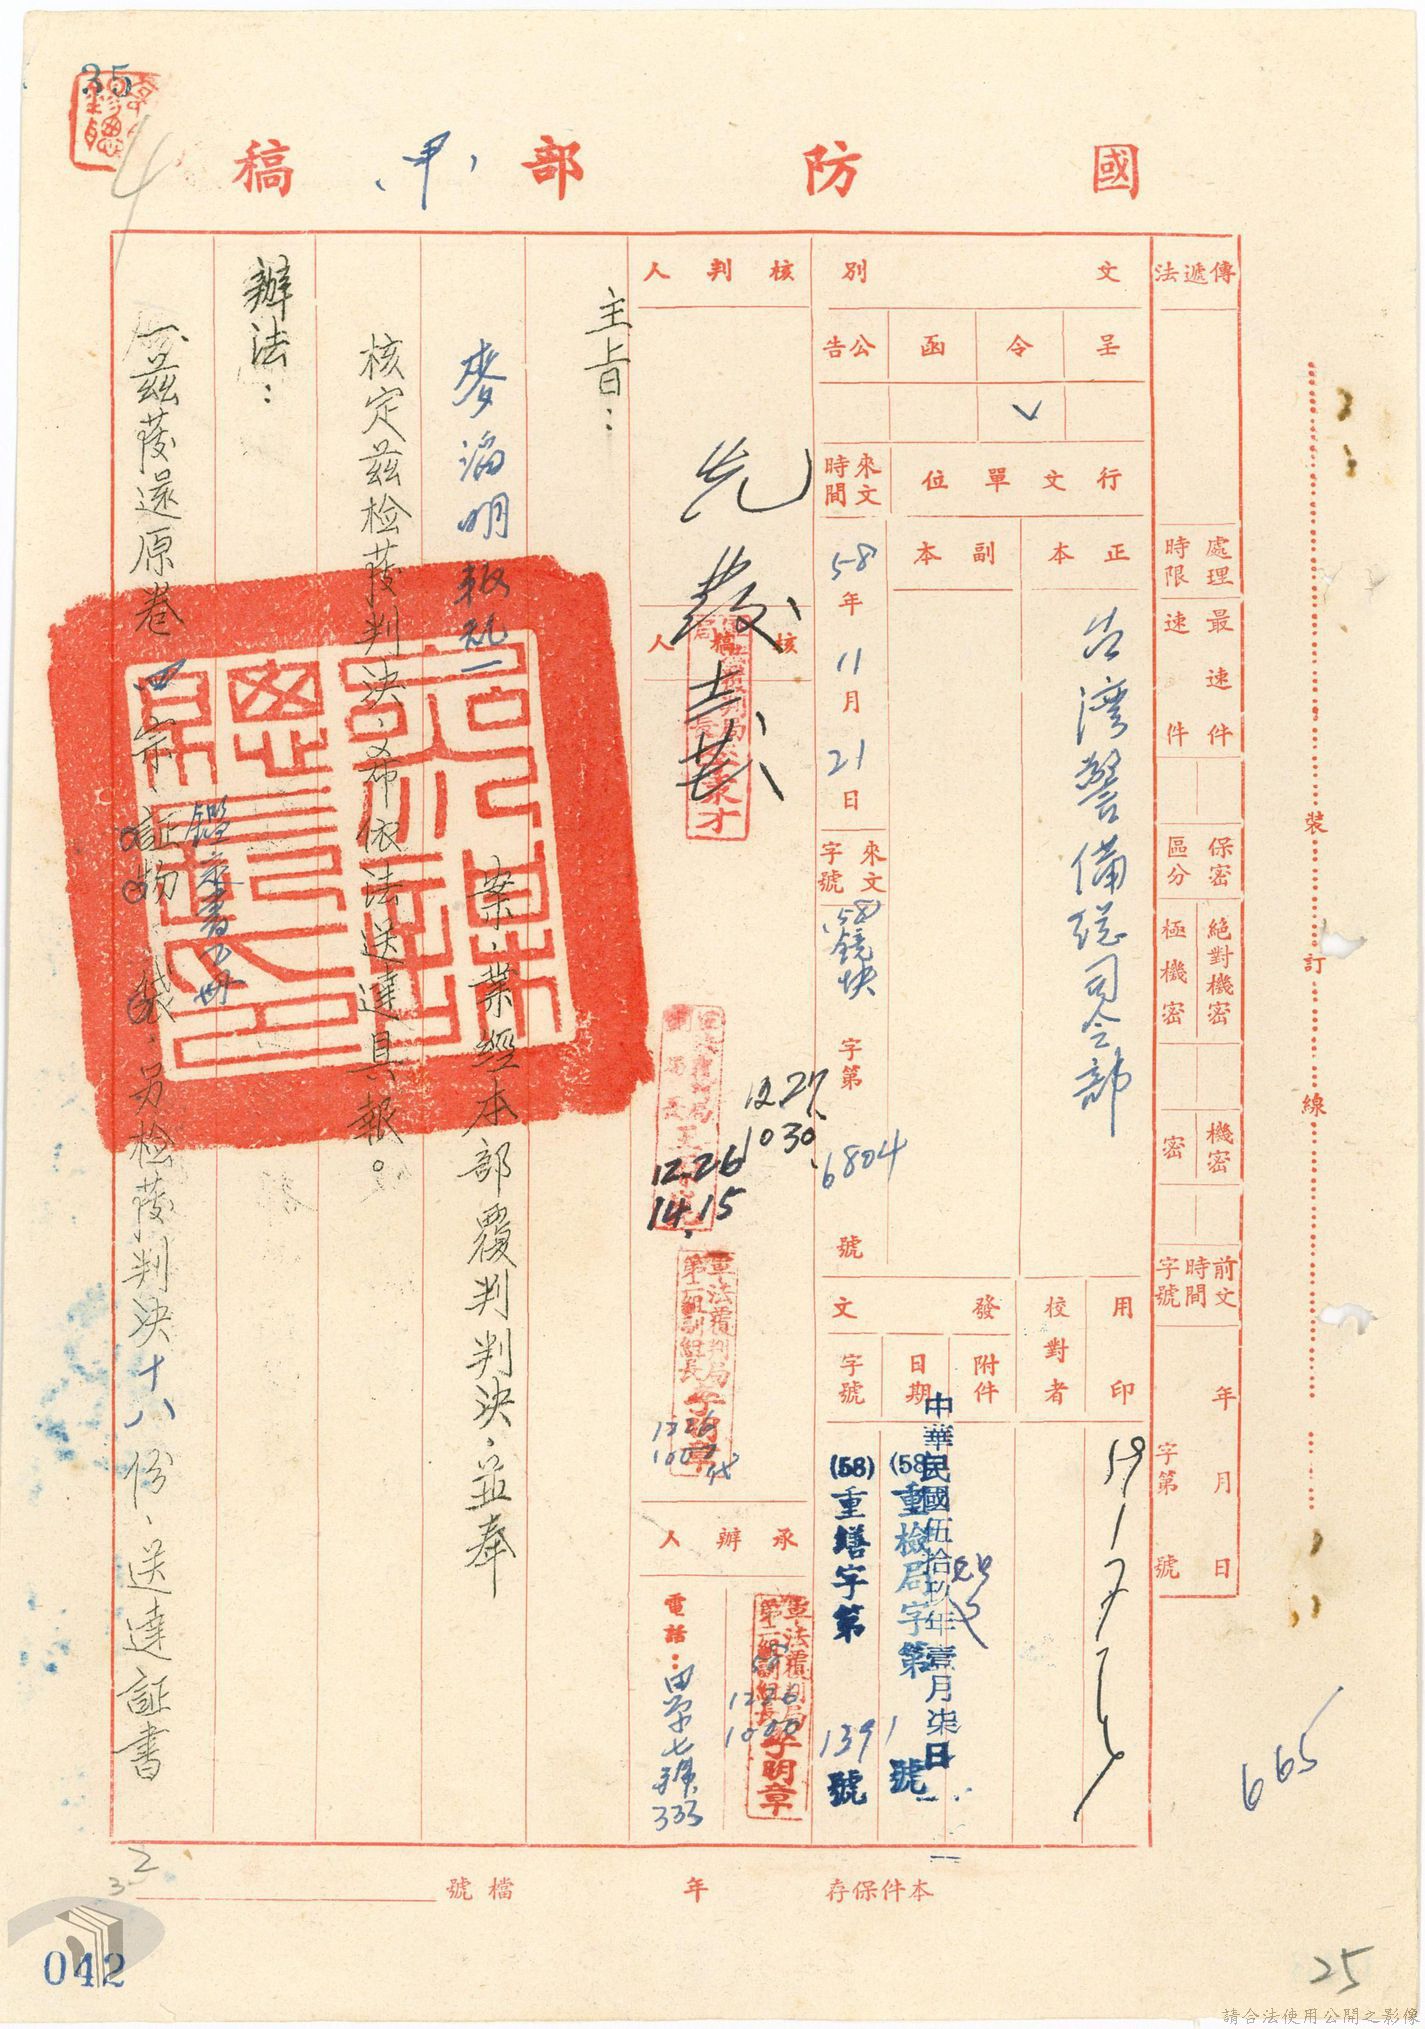 35
4
國防部稿
傳遞法
處理時限
最速件
速件
保密區分
絕對機密
極機密
機密
密
前文時間字號
年月日
字第號
文別
呈
令
函
公告
行文單位
正本
副本
台灣警備總司令部
來文時間
58年11月21日
來文字號
字第6804號
用印
校對者
發文
附件
日期
字號
中華民國伍拾玖年壹月柒日
(58)重檢局字第
號
(58)重繕字第1391號
核判人
核稿人
12.27.
1030.
12.26
14.15
軍法覆判局
第二組副組長
1226
承辦人
軍法覆判局
第二組副組長李明章
1226
1000
電話:
333
主旨:
案,業經本部覆判判決,並奉
核定茲檢發判決,希依法送達具報。
辦法:
一、茲發還原卷四宗、証物袋,另檢發判決十八份,送達証書
本件保存
年
檔號
裝
訂
線
665
25
2
3
042
請合法使用公開之影像